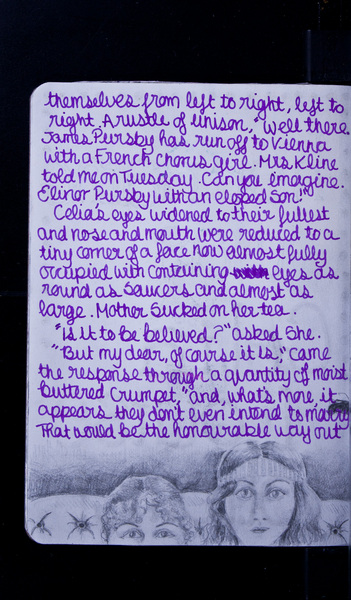 themselves from left to right, left to
right. A rustle of unison, "Well there.
James Pursby has run off to Vienna
with a French chorus girl. Mrs Kline
told me on Tuesday. Can you imagine.
Elinor Pursby with an eloped Son!"
Celia's eyes widened to their fullest
and nose and mouth were reduced to a
tiny corner of a face now almost fully
occupied with containing eyes as
round as saucers and almost as
large. Mother sucked on her tea.
"Is it to be believed?" asked She.
"But my dear, of course it is," came
the response through a quantity of moist
buttered crumpet, "and, what's more, it
appears they don't even intend to marry
That would be the honourable way out